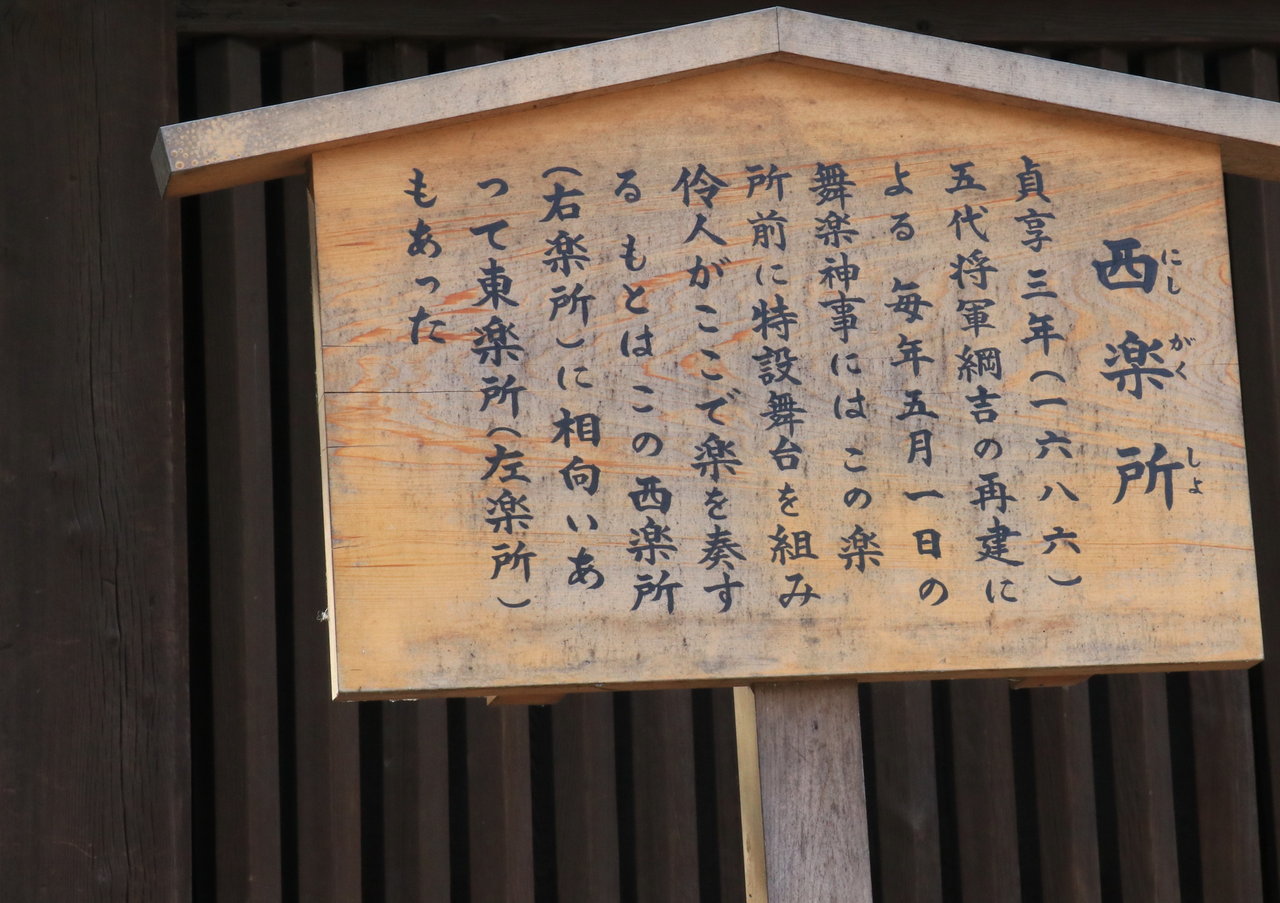 西楽所
にし がく しよ
貞享三年(一六八六)
五代将軍綱吉の再建に
よる 毎年五月一日の
舞楽神事にはこの楽
所前に特設舞台を組み
伶人がここで楽を奏す
る もとはこの西楽所
(右楽所)に相向いあ
って東楽所(左楽所)
もあった